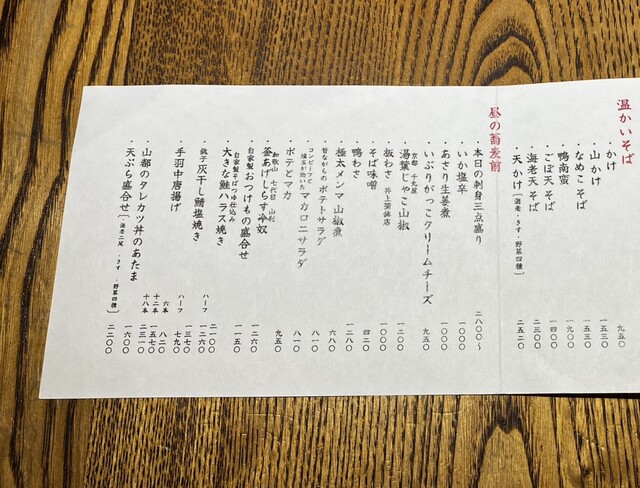 温かいそば
かけ 九五〇
山かけ 一五三〇
なめこそば 一五三〇
鴨南蛮 一九〇〇
ごぼ天そば 一四〇〇
海老天そば 二三〇〇
天かけ〔海老・きす・野菜四種〕 二五二〇
昼の蕎麦前
本日の刺身三点盛り 二八〇〇〜
いか塩辛 一〇〇〇
あさり生姜煮 一〇〇〇
いぶりがっこクリームチーズ 九五〇
京都 千丸屋
湯葉じゃこ山椒 一二〇〇
板わさ 井上蒲鉾店 一〇〇〇
そば味噌 四二〇
鴨わさ 一二八〇
極太メンマ山椒煮 六八〇
昔ながらのポテトサラダ 八一〇
コンビーフと
燻玉が効いたマカロニサラダ 八一〇
ポテとマカ 九五〇
和歌山 七代目 山利
釜あげしらす冷奴
自家製おつけもの盛合せ 一二六〇
自家製そばつゆ仕込み
大きな鮭ハラス焼き 一一五〇
銚子灰干し鯖塩焼き 二一〇〇
ハーフ 一二六〇
手羽中唐揚げ 一三七〇
ハーフ 七九〇
山都のタレカツ丼のあたま 六本 八二〇
十二本 一五七〇
十八本 二三一〇
天ぷら盛合せ〔海老二尾・きす・野菜四種〕 二二〇〇
一六〇〇